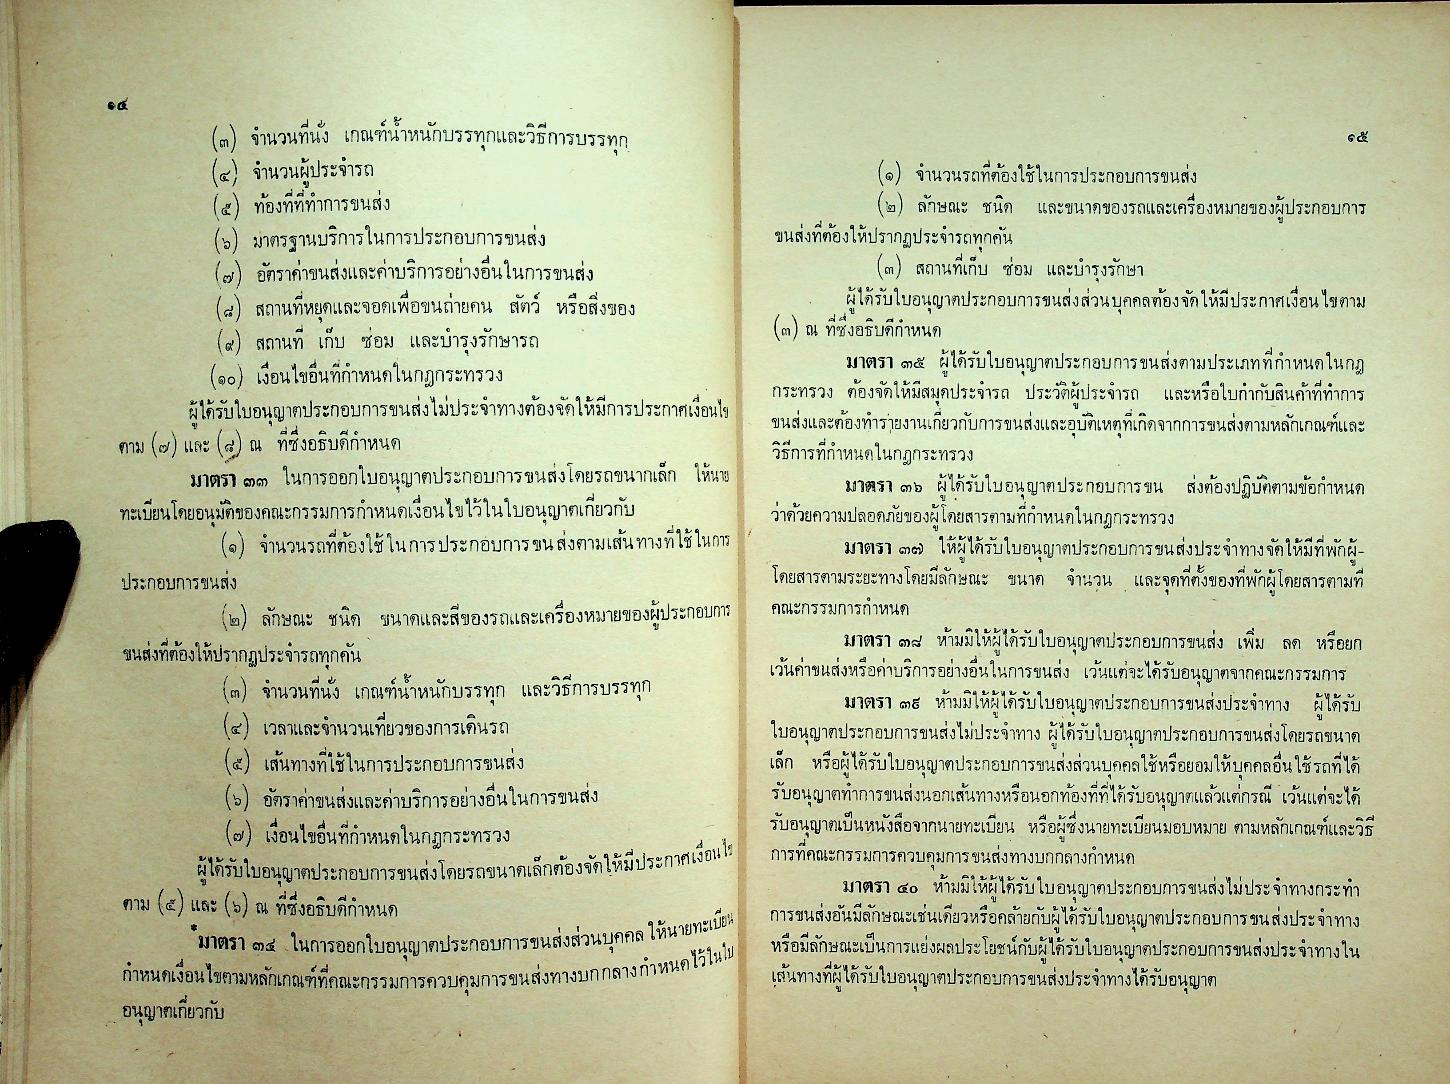 ๑๔
(๓) จำนวนที่นั่ง เกณฑ์น้ำหนักบรรทุกและวิธีการบรรทุก
(๔) จำนวนผู้ประจำรถ
(๕) ท้องที่ที่ทำการขนส่ง
(๖) มาตรฐานบริการในการประกอบการขนส่ง
(๗) อัตราค่าขนส่งและค่าบริการอย่างอื่นในการขนส่ง
(๘) สถานที่หยุดและจอดเพื่อขนถ่ายคน สัตว์ หรือสิ่งของ
(๙) สถานที่ เก็บ ซ่อม และบำรุงรักษารถ
(๑๐) เงื่อนไขอื่นที่กำหนดในกฎกระทรวง
ผู้ได้รับใบอนุญาตประกอบการขนส่งไม่ประจำทางต้องจัดให้มีการประกาศเงื่อนไข
ตาม (๗) และ (๘) ณ ที่ซึ่งอธิบดีกำหนด
มาตรา ๓๓ ในการออกใบอนุญาตประกอบการขนส่งโดยรถขนาดเล็ก ให้นาย
ทะเบียนโดยอนุมัติของคณะกรรมการกำหนดเงื่อนไขไว้ในใบอนุญาตเกี่ยวกับ
(๑) จำนวนรถที่ต้องใช้ในการประกอบการขนส่งตามเส้นทางที่ใช้ในการ
ประกอบการขนส่ง
(๒) ลักษณะ ชนิด ขนาดและสีของรถและเครื่องหมายของผู้ประกอบการ
ขนส่งที่ต้องให้ปรากฏประจำรถทุกคัน
(๓) จำนวนที่นั่ง เกณฑ์น้ำหนักบรรทุก และวิธีการบรรทุก
(๔) เวลาและจำนวนเที่ยวของการเดินรถ
(๕) เส้นทางที่ใช้ในการประกอบการขนส่ง
(๖) อัตราค่าขนส่งและค่าบริการอย่างอื่นในการขนส่ง
(๗) เงื่อนไขอื่นที่กำหนดในกฎกระทรวง
ผู้ได้รับใบอนุญาตประกอบการขนส่งโดยรถขนาดเล็กต้องจัดให้มีประกาศเงื่อนไข
ตาม (๕) และ (๖) ณ ที่ซึ่งอธิบดีกำหนด
*มาตรา ๓๔ ในการออกใบอนุญาตประกอบการขนส่งส่วนบุคคล ให้นายทะเบียน
กำหนดเงื่อนไขตามหลักเกณฑ์ที่คณะกรรมการควบคุมการขนส่งทางบกกลางกำหนดไว้ในใบ
อนุญาตเกี่ยวกับ
๑๕
(๑) จำนวนรถที่ต้องใช้ในการประกอบการขนส่ง
(๒) ลักษณะ ชนิด และขนาดของรถและเครื่องหมายของผู้ประกอบการ
ขนส่งที่ต้องให้ปรากฏประจำรถทุกคัน
(๓) สถานที่เก็บ ซ่อม และบำรุงรักษา
ผู้ได้รับใบอนุญาตประกอบการขนส่งส่วนบุคคลต้องจัดให้มีประกาศเงื่อนไขตาม
(๓) ณ ที่ซึ่งอธิบดีกำหนด
มาตรา ๓๕ ผู้ได้รับใบอนุญาตประกอบการขนส่งตามประเภทที่กำหนดในกฎ
กระทรวง ต้องจัดให้มีสมุดประจำรถ ประวัติผู้ประจำรถ และหรือใบกำกับสินค้าที่ทำการ
ขนส่งและต้องทำรายงานเกี่ยวกับการขนส่งและอุบัติเหตุที่เกิดจากการขนส่งตามหลักเกณฑ์และ
วิธีการที่กำหนดในกฎกระทรวง
มาตรา ๓๖ ผู้ได้รับใบอนุญาตประกอบการขน ส่งต้องปฏิบัติตามข้อกำหนด
ว่าด้วยความปลอดภัยของผู้โดยสารตามที่กำหนดในกฎกระทรวง
มาตรา ๓๗ ให้ผู้ได้รับใบอนุญาตประกอบการขนส่งประจำทางจัดให้มีที่พักผู้-
โดยสารตามระยะทางโดยมีลักษณะ ขนาด จำนวน และจุดที่ตั้งของที่พักผู้โดยสารตามที่
คณะกรรมการกำหนด
มาตรา ๓๘ ห้ามมิให้ผู้ได้รับใบอนุญาตประกอบการขนส่ง เพิ่ม ลด หรือยก
เว้นค่าขนส่งหรือค่าบริการอย่างอื่นในการขนส่ง เว้นแต่จะได้รับอนุญาตจากคณะกรรมการ
มาตรา ๓๙ ห้ามมิให้ผู้ได้รับใบอนุญาตประกอบการขนส่งประจำทาง ผู้ได้รับ
ใบอนุญาตประกอบการขนส่งไม่ประจำทาง ผู้ได้รับใบอนุญาตประกอบการขนส่งโดยรถขนาด
เล็ก หรือผู้ได้รับใบอนุญาตประกอบการขนส่งส่วนบุคคลใช้หรือยอมให้บุคคลอื่นใช้รถที่ได้
รับอนุญาตทำการขนส่งนอกเส้นทางหรือนอกท้องที่ที่ได้รับอนุญาตแล้วแต่กรณี เว้นแต่จะได้
รับอนุญาตเป็นหนังสือจากนายทะเบียน หรือผู้ซึ่งนายทะเบียนมอบหมาย ตามหลักเกณฑ์และวิธี
การที่คณะกรรมการควบคุมการขนส่งทางบกกลางกำหนด
มาตรา ๔๐ ห้ามมิให้ผู้ได้รับใบอนุญาตประกอบการขนส่งไม่ประจำทางกระทำ
การขนส่งอันมีลักษณะเช่นเดียวหรือคล้ายกับผู้ได้รับใบอนุญาตประกอบการขนส่งประจำทาง
หรือมีลักษณะเป็นการแย่งผลประโยชน์กับผู้ได้รับใบอนุญาตประกอบการขนส่งประจำทางใน
เส้นทางที่ผู้ได้รับใบอนุญาตประกอบการขนส่งประจำทางได้รับอนุญาต